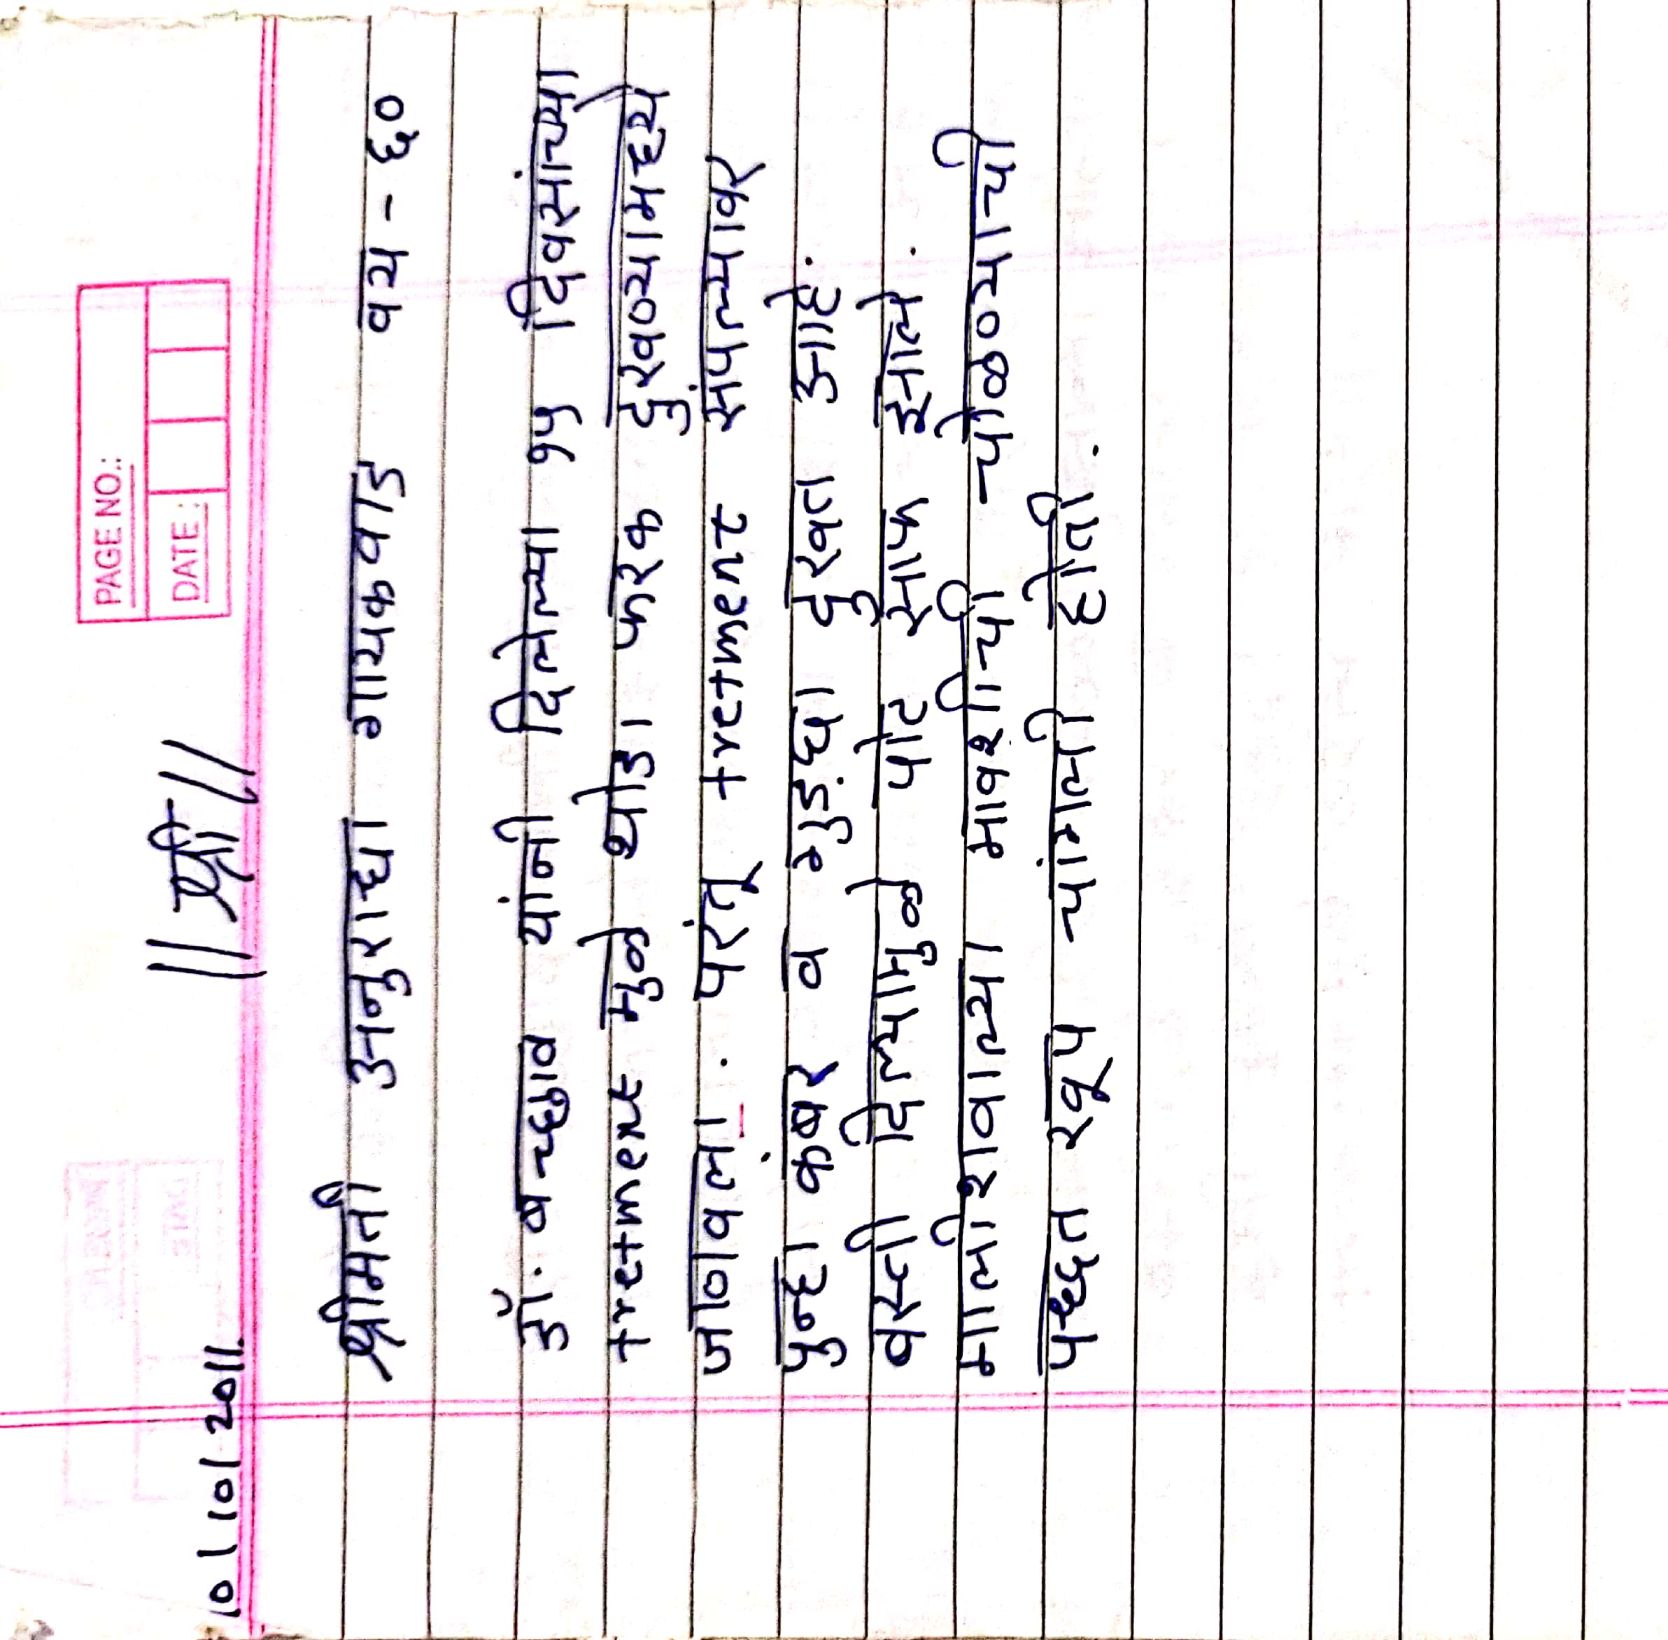 PAGE NO.:
DATE :
10/10/2011.
॥ श्री ॥
श्रीमती अनुराधा गायकवाड वय - ६०
डॉ. बच्छाव यांनी दिलेल्या १५ दिवसांच्या
tretment मुळे थोडा फरक दुखण्यामध्ये
जाणवला. परंतू tretment संपल्यावर
पुन्हा कंबर व गुडघा दुखत आहे.
बस्ती दिल्यामुळे पोट साफ झाले.
मालीशवाल्या मावशीची चोळण्याची
पध्दत खूप चांगली होती.